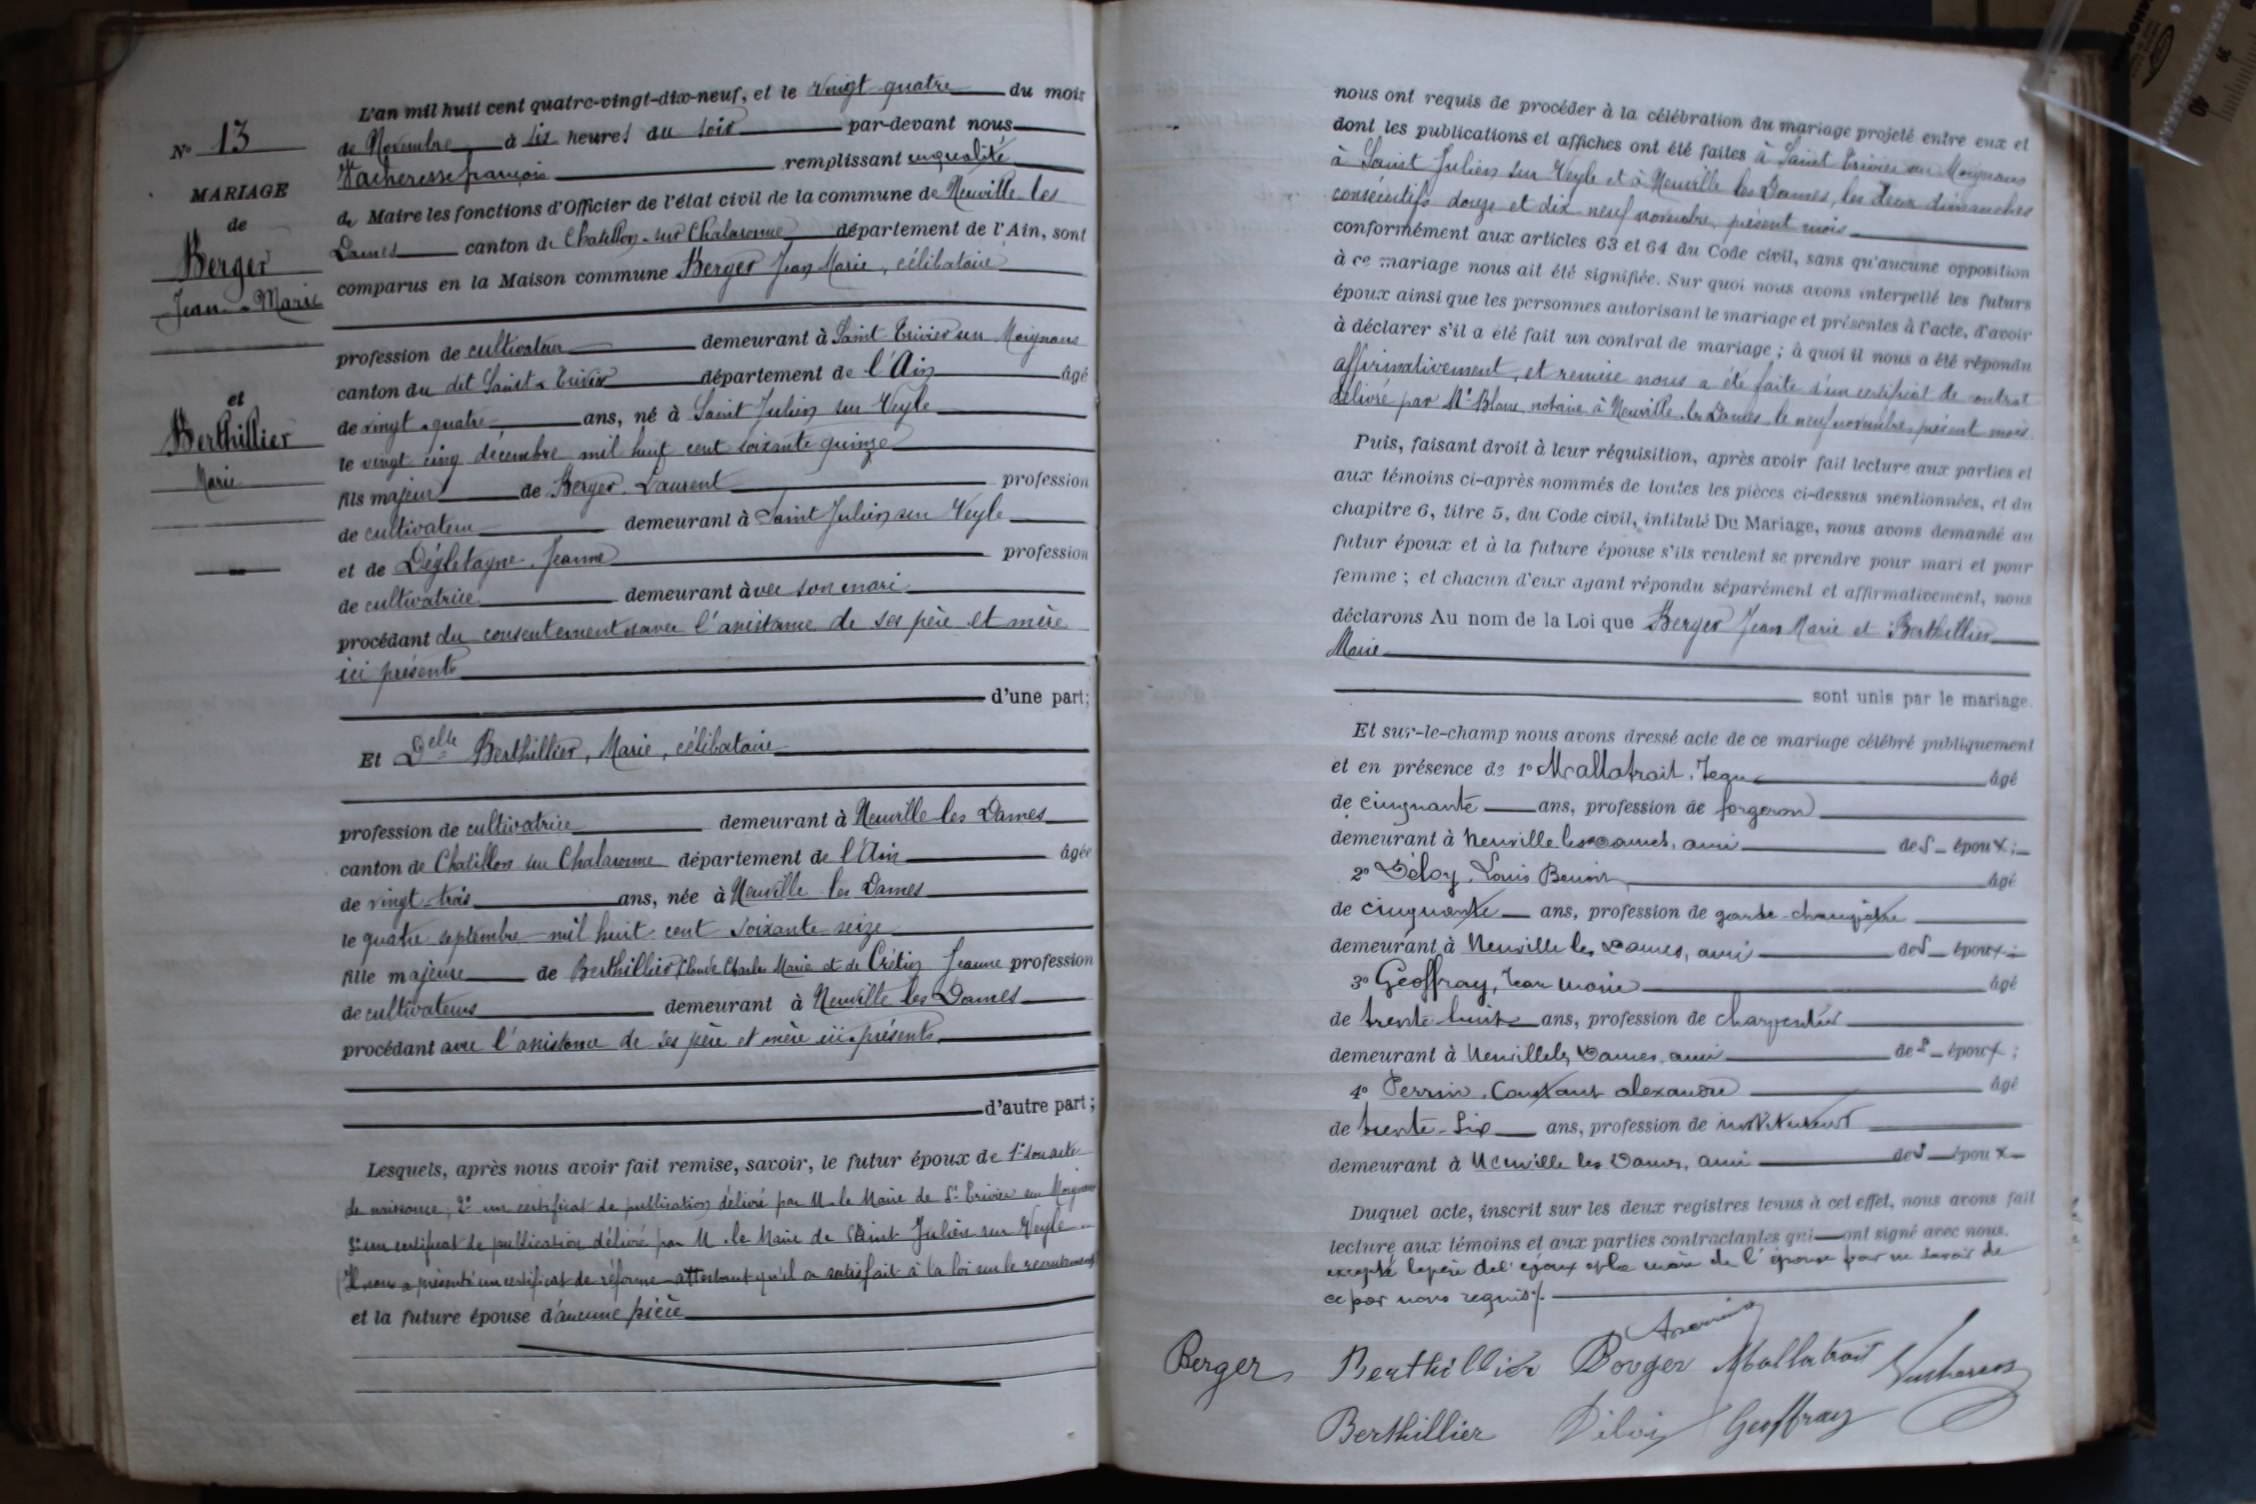 N° 13
MARIAGE
de
Berger
Jean-Marie
et
Berthillier
Marie
L'an mil huit cent quatre-vingt-dix-neuf, et le vingt quatre du mois
de Novembre à six heures du soir par-devant nous
Vacheresse françois remplissant en qualité
de Maire les fonctions d'Officier de l'état civil de la commune de Neuville les
Dames canton de Chatillon-sur Chalaronne département de l'Ain, sont
comparus en la Maison commune Berger Jean Marie, célibataire
profession de cultivateur demeurant à Saint-Trivier sur Moignans
canton du dit Saint-Trivier département de l'Ain âgé
de vingt-quatre ans, né à Saint Julien sur Veyle
le vingt cinq décembre mil huit cent soixante quinze
fils majeur de Berger Laurent profession
de cultivateur demeurant à Saint Julien sur Veyle
et de Dégletagne, Jeanne profession
de cultivatrice demeurant à avec son mari
procédant du consentement et avec l'assistance de ses père et mère
ici présents
d'une part;
Et Delle Berthillier, Marie, célibataire
profession de cultivatrice demeurant à Neuville les Dames
canton de Chatillon sur Chalaronne département de l'Ain âgée
de vingt-trois ans, née à Neuville les Dames
le quatre septembre mil huit cent soixante seize
fille majeure de Berthillier, Claude Charles Marie et de Crétin Jeanne profession
de cultivateurs demeurant à Neuville les Dames
procédant avec l'assistance de ses père et mère ici présents
d'autre part;
Lesquels, après nous avoir fait remise, savoir, le futur époux de 1° son acte
de naissance; 2° un certificat de publication délivré par M. le Maire de St Trivier sur Moignans
3° un certificat de publication délivré par M. le Maire de Saint Julien sur Veyle
Il nous a présenté un certificat de réforme attestant qu'il a satisfait à la loi sur le recrutement
et la future épouse d'aucune pièce
nous ont requis de procéder à la célébration du mariage projeté entre eux et
dont les publications et affiches ont été faites à Saint Trivier sur Moignans
à Saint Julien sur Veyle et à Neuville les Dames, les deux dimanches
consécutifs douze et dix neuf novembre, présent mois
conformément aux articles 63 et 64 du Code civil, sans qu'aucune opposition
à ce mariage nous ait été signifiée. Sur quoi nous avons interpellé les futurs
époux ainsi que les personnes autorisant le mariage et présentes à l'acte, d'avoir
à déclarer s'il a été fait un contrat de mariage; à quoi il nous a été répondu
affirmativement, et remise nous a été faite d'un certificat de contrat
délivré par Me Blanc, notaire à Neuville les Dames le neuf novembre, présent mois
Puis, faisant droit à leur réquisition, après avoir fait lecture aux parties et
aux témoins ci-après nommés de toutes les pièces ci-dessus mentionnées, et du
chapitre 6, titre 5, du Code civil, intitulé Du Mariage, nous avons demandé au
futur époux et à la future épouse s'ils veulent se prendre pour mari et pour
femme; et chacun d'eux ayant répondu séparément et affirmativement, nous
déclarons Au nom de la Loi que Berger Jean Marie et Berthillier
Marie
sont unis par le mariage.
Et sur-le-champ nous avons dressé acte de ce mariage célébré publiquement
et en présence de 1° Mallatrait, Jean âgé
de cinquante ans, profession de forgeron
demeurant à Neuville les Dames, ami des époux;
2° Déloy, Louis Benoit âgé
de cinquante ans, profession de garde-champêtre
demeurant à Neuville les Dames, ami des époux;
3° Geoffray, Jean Marie âgé
de trente huit ans, profession de charpentier
demeurant à Neuville les Dames, ami des époux;
4° Perrin, Constant alexandre âgé
de trente-six ans, profession de instituteur
demeurant à Neuville les Dames, ami des époux
Duquel acte, inscrit sur les deux registres tenus à cet effet, nous avons fait
lecture aux témoins et aux parties contractantes qui ont signé avec nous.
excepté le père de l'époux et la mère de l'épouse pour ne savoir de
ce par nous requis.
Berger Berthillier Berger Mallatrait Vacheresse
Berthillier Déloy Geoffray